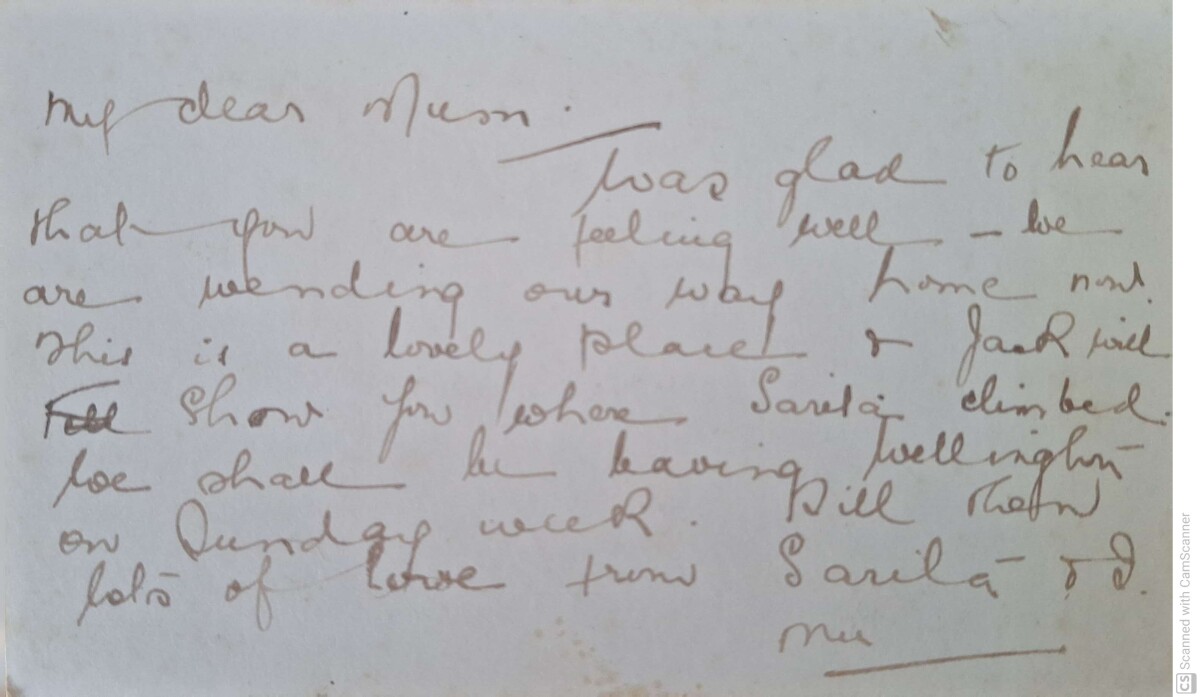 My dear Mum.
Was glad to hear
that you are feeling well - We
are wending our way home now.
This is a lovely place & Jack will
show you where Sarita climbed.
We shall be leaving Wellington
on Sunday week. Till then
lots of love from Sarita & I.
CS Scanned with CamScanner